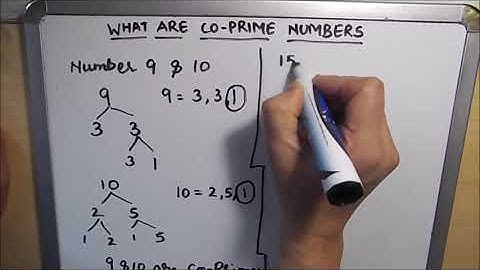 WHAT ARE CO-PRIME NUMBERS
Number 9 & 10
9
9 = 3, 3, 1
3 3
3 1
10
10 = 2, 5, 1
2 5
1 2 1 5
9 & 10 are co-Prime
15